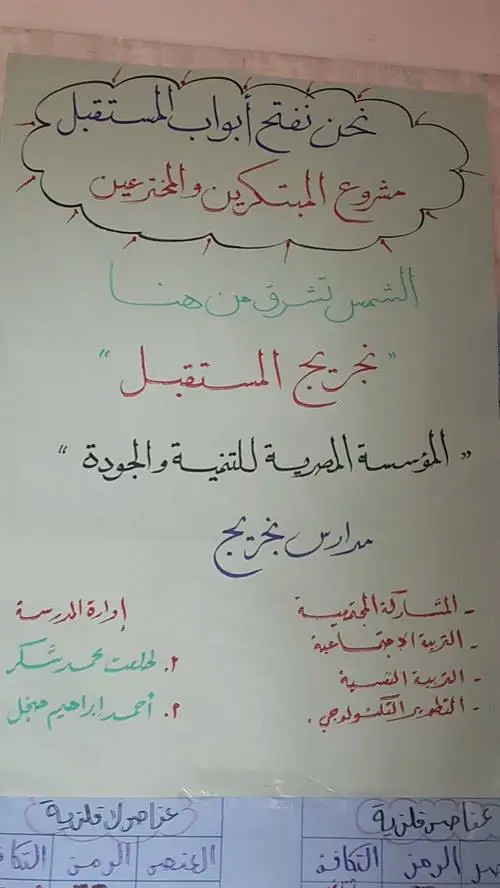 نحن نفتح أبواب المستقبل
مشروع المبتكرين والمخترعين
الشمس تشرق من هنا
" نجريج المستقبل "
" المؤسسة المصرية للتنمية والجودة "
مدارس نجريج
- المشاركة المجتمعية
- التربية الاجتماعية
- التربية النفسية
- التطوير التكنولوجي .
إدارة المدرسة
أ. طلعت محمد شكر
أ. أحمد إبراهيم
عناصر فلزية
الرمز التكافؤ
عناصر لا فلزية
العنصر الرمز التكافؤ